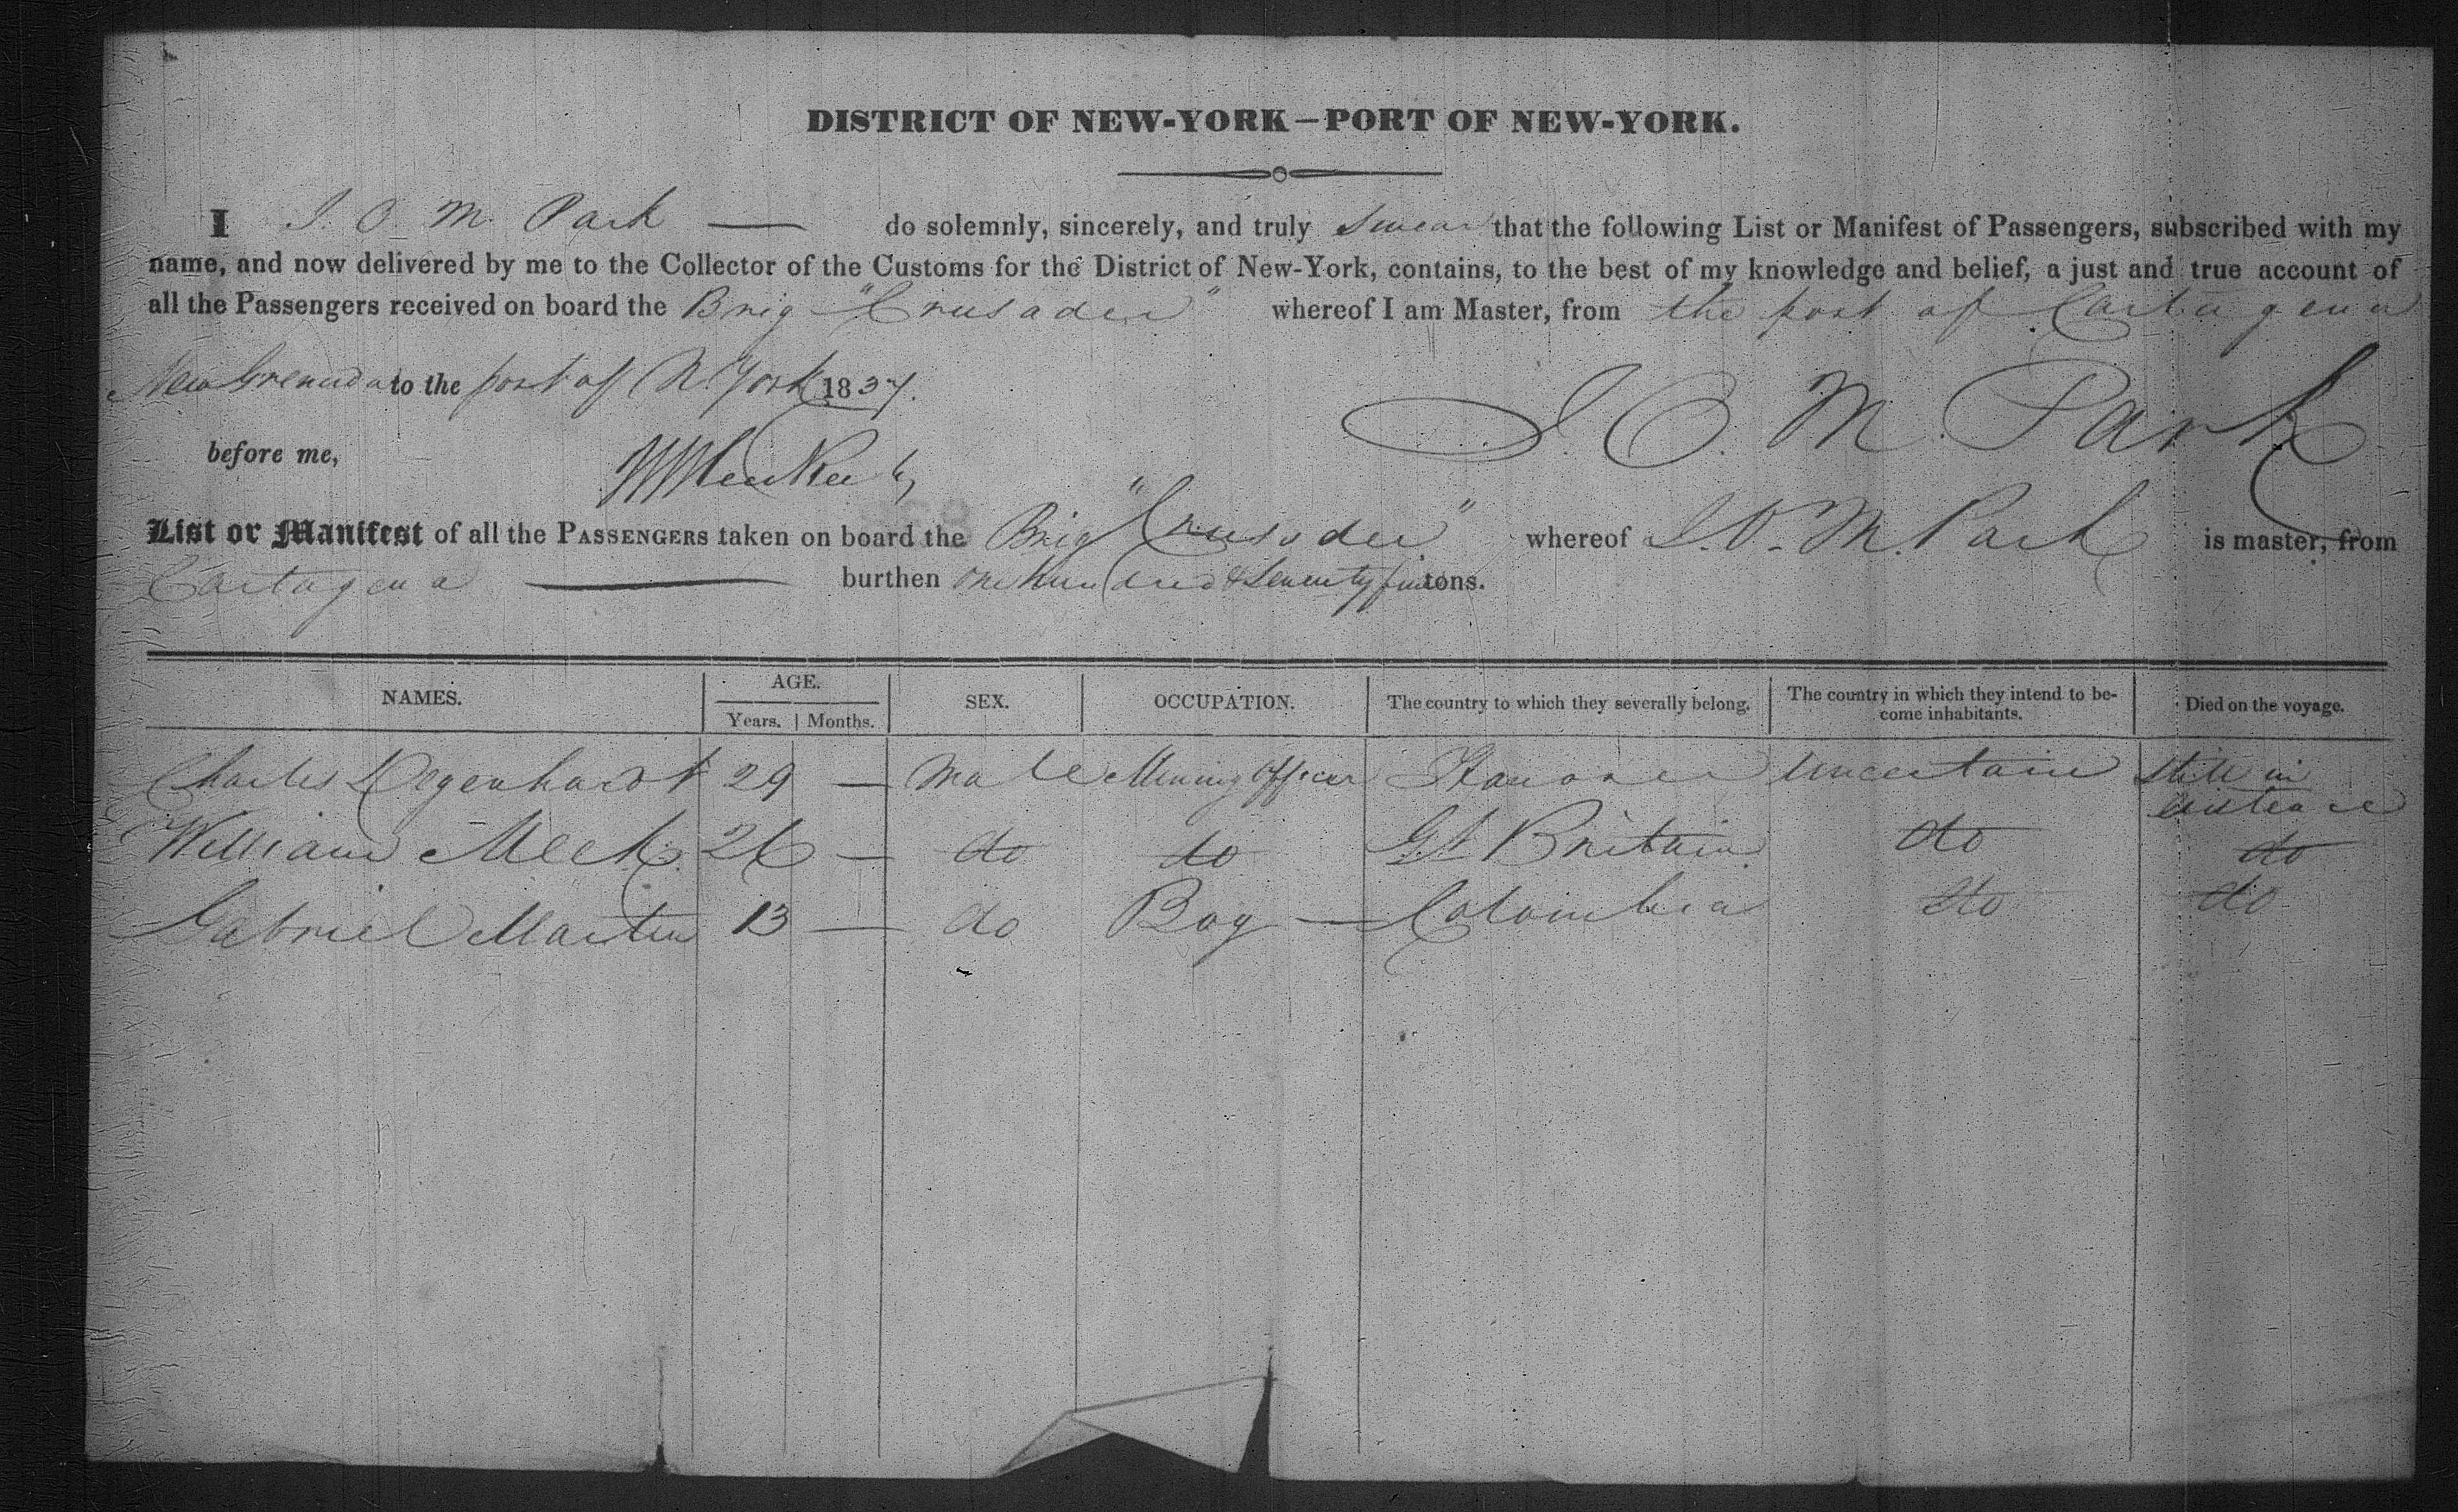 DISTRICT OF NEW-YORK—PORT OF NEW-YORK.
I J. O. M. Park — do solemnly, sincerely, and truly swear that the following List or Manifest of Passengers, subscribed with my
name, and now delivered by me to the Collector of the Customs for the District of New-York, contains, to the best of my knowledge and belief, a just and true account of
all the Passengers received on board the Brig "Crusader" whereof I am Master, from the port of Cartagena
New Grenada to the port of N York 1837.
J. O. M. Park
before me,
List or Manifest of all the PASSENGERS taken on board the Brig "Crusader" whereof J. O. M. Park is master, from
Cartagena — burthen one hundred & seventy five tons.
NAMES. AGE. Years. Months. SEX. OCCUPATION. The country to which they severally belong. The country in which they intend to be- come inhabitants. Died on the voyage.
Charles Degenhardt 29 — Male Mining Officer Hanover Uncertain still in existence
William Meek 26 — do do Gt Britain do do
Gabriel Martin 13 — do Boy — Colombia do do